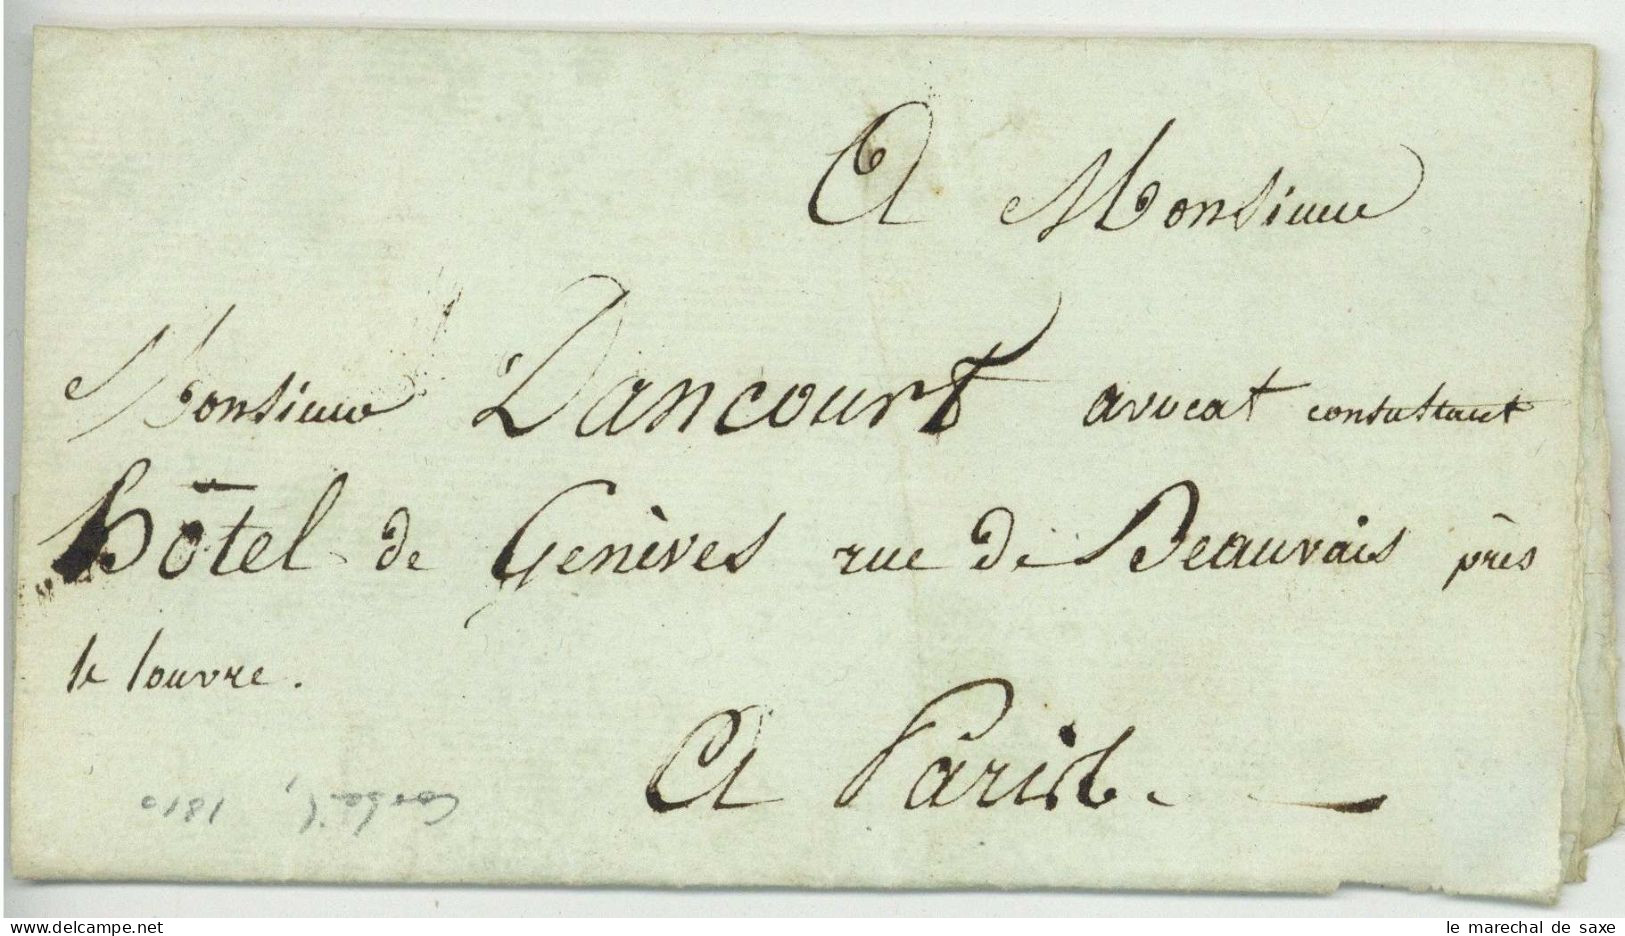 A Monsieur
Monsieur Dancourt avocat consultant
hôtel de Genèves rue de Beauvais près
le louvre.
A Paris.
Corbeil, 1810
le marechal de saxe